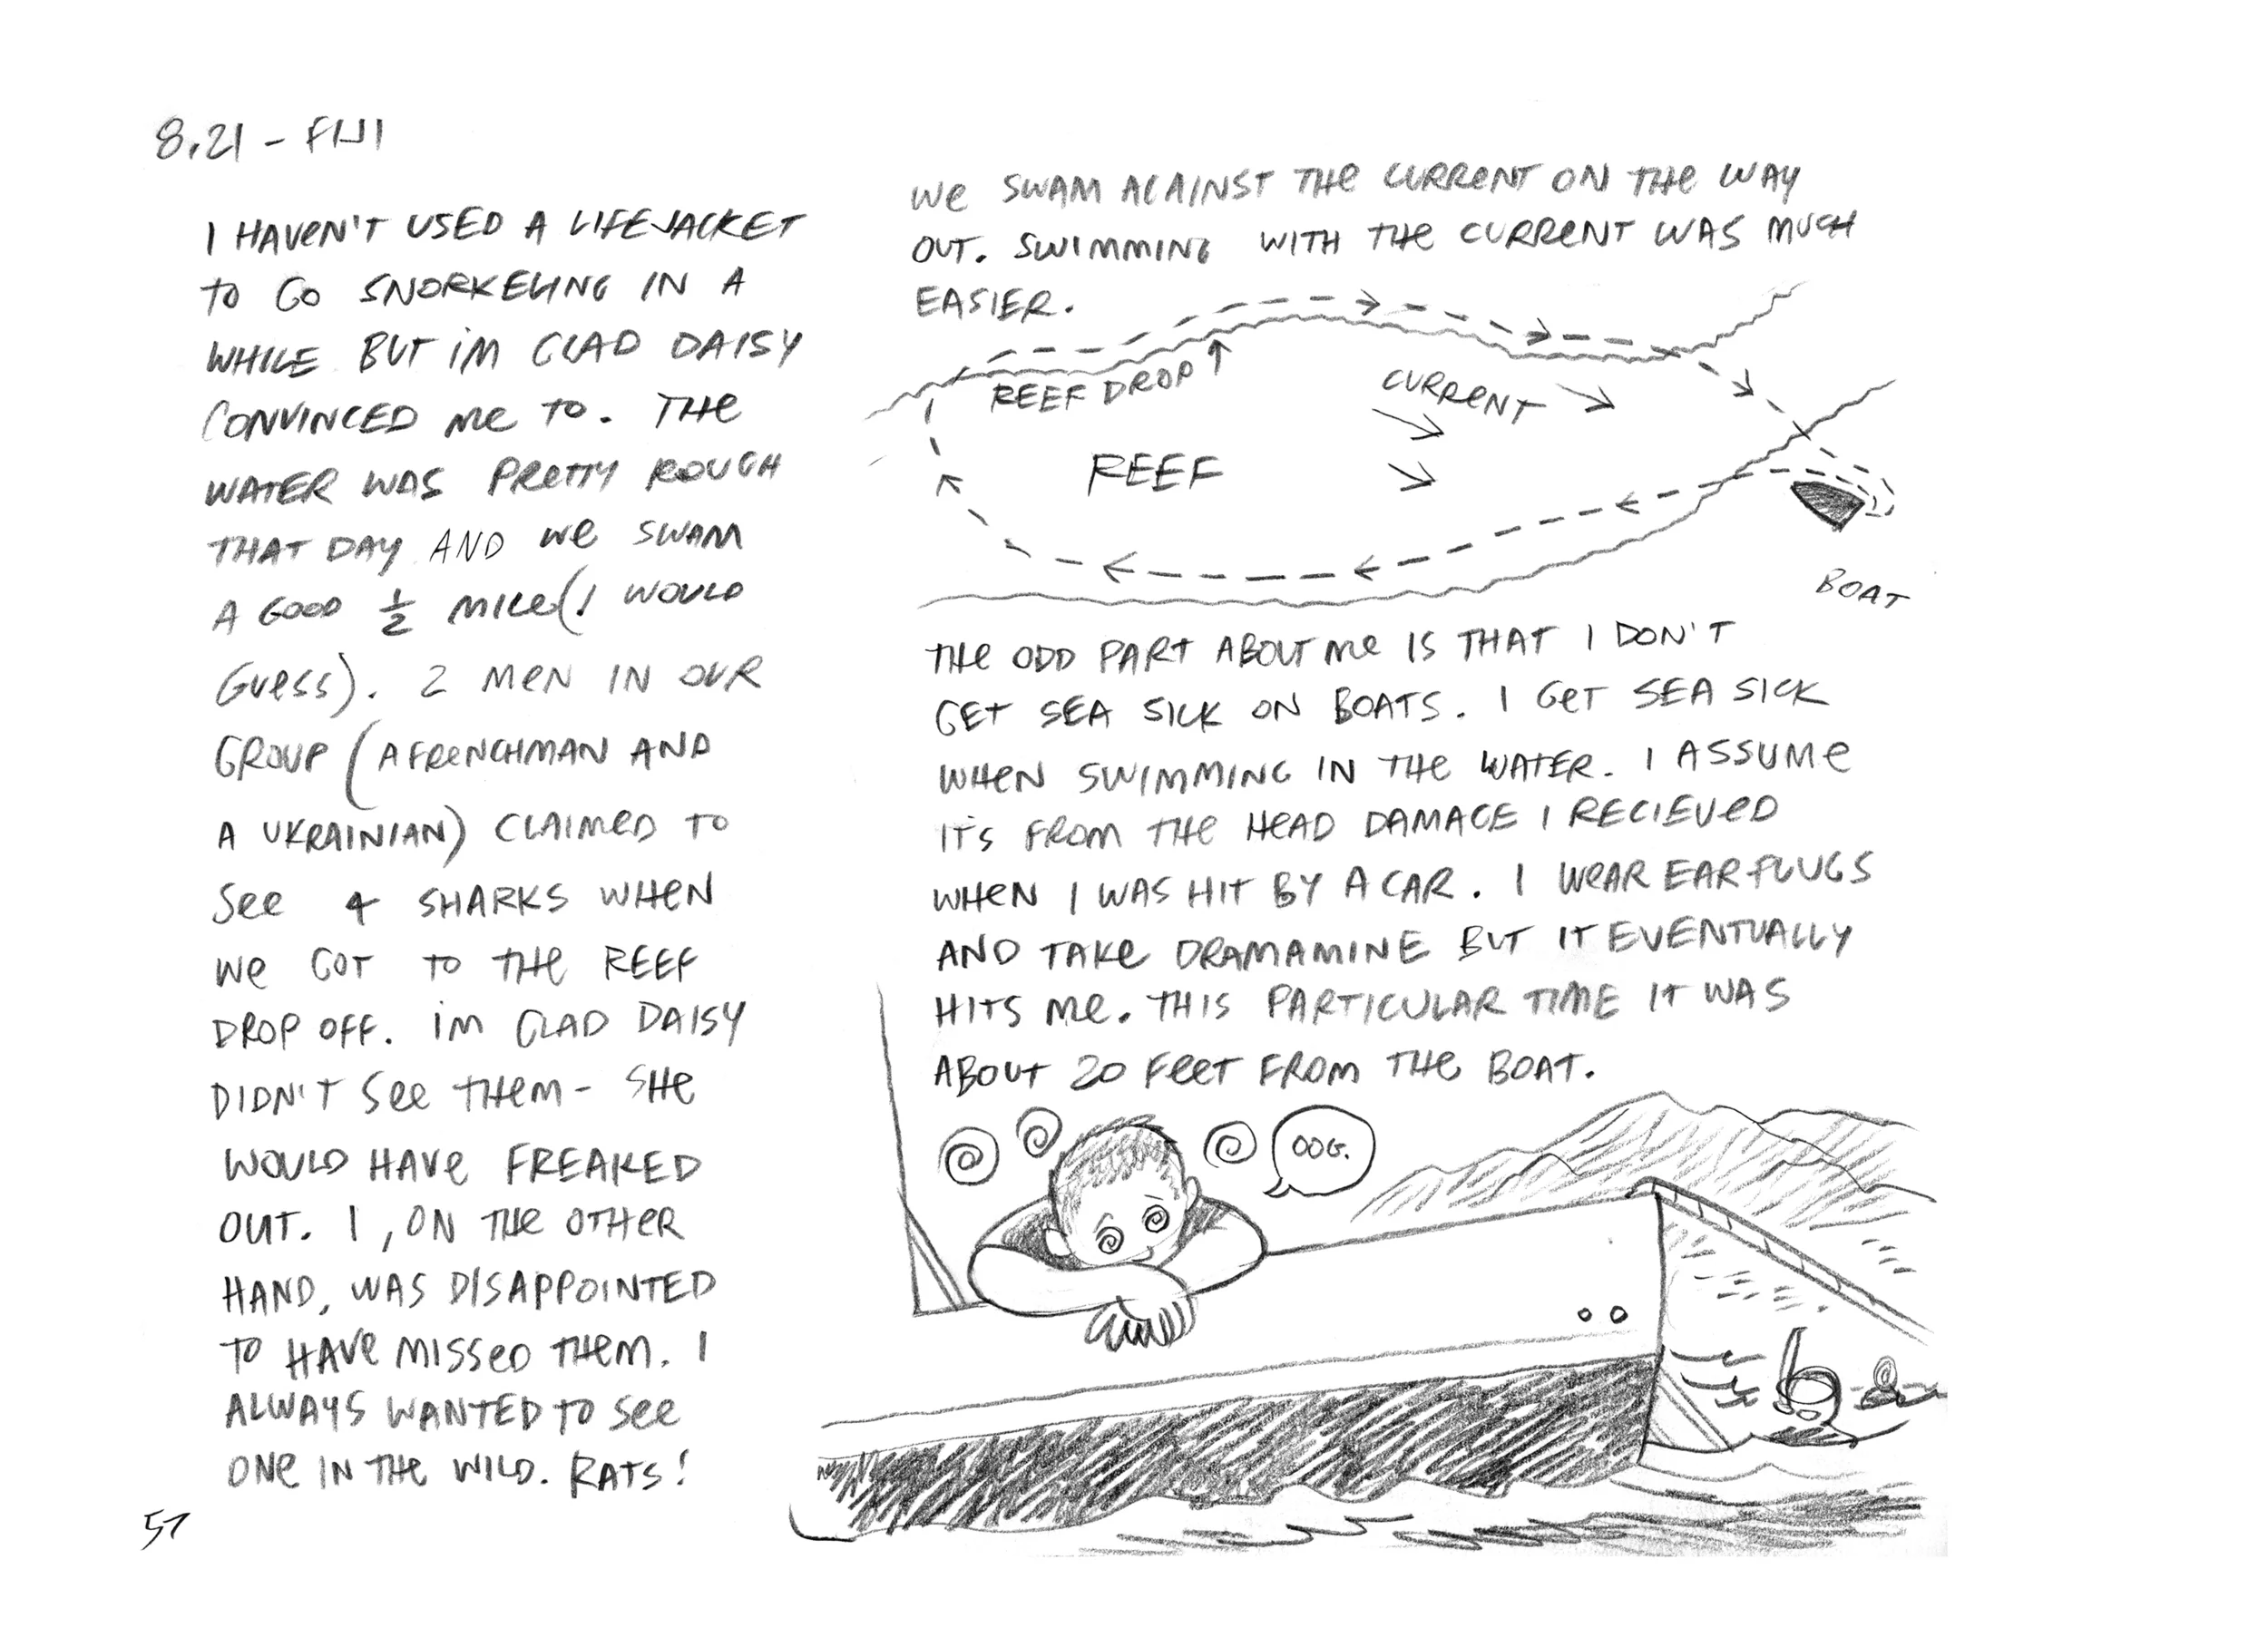 8.21 - FIJI
I HAVEN'T USED A LIFEJACKET
TO GO SNORKELING IN A
WHILE BUT I'M GLAD DAISY
CONVINCED ME TO. THE
WATER WAS PRETTY ROUGH
THAT DAY AND WE SWAM
A GOOD 1/2 MILE (I WOULD
GUESS). 2 MEN IN OUR
GROUP (A FRENCHMAN AND
A UKRAINIAN) CLAIMED TO
SEE 4 SHARKS WHEN
WE GOT TO THE REEF
DROP OFF. I'M GLAD DAISY
DIDN'T SEE THEM - SHE
WOULD HAVE FREAKED
OUT. I, ON THE OTHER
HAND, WAS DISAPPOINTED
TO HAVE MISSED THEM. I
ALWAYS WANTED TO SEE
ONE IN THE WILD. RATS!
57
WE SWAM AGAINST THE CURRENT ON THE WAY
OUT. SWIMMING WITH THE CURRENT WAS MUCH
EASIER.
REEF DROP
CURRENT
REEF
BOAT
THE ODD PART ABOUT ME IS THAT I DON'T
GET SEA SICK ON BOATS. I GET SEA SICK
WHEN SWIMMING IN THE WATER. I ASSUME
IT'S FROM THE HEAD DAMAGE I RECIEVED
WHEN I WAS HIT BY A CAR. I WEAR EAR PLUGS
AND TAKE DRAMAMINE BUT IT EVENTUALLY
HITS ME. THIS PARTICULAR TIME IT WAS
ABOUT 20 FEET FROM THE BOAT.
OOG.